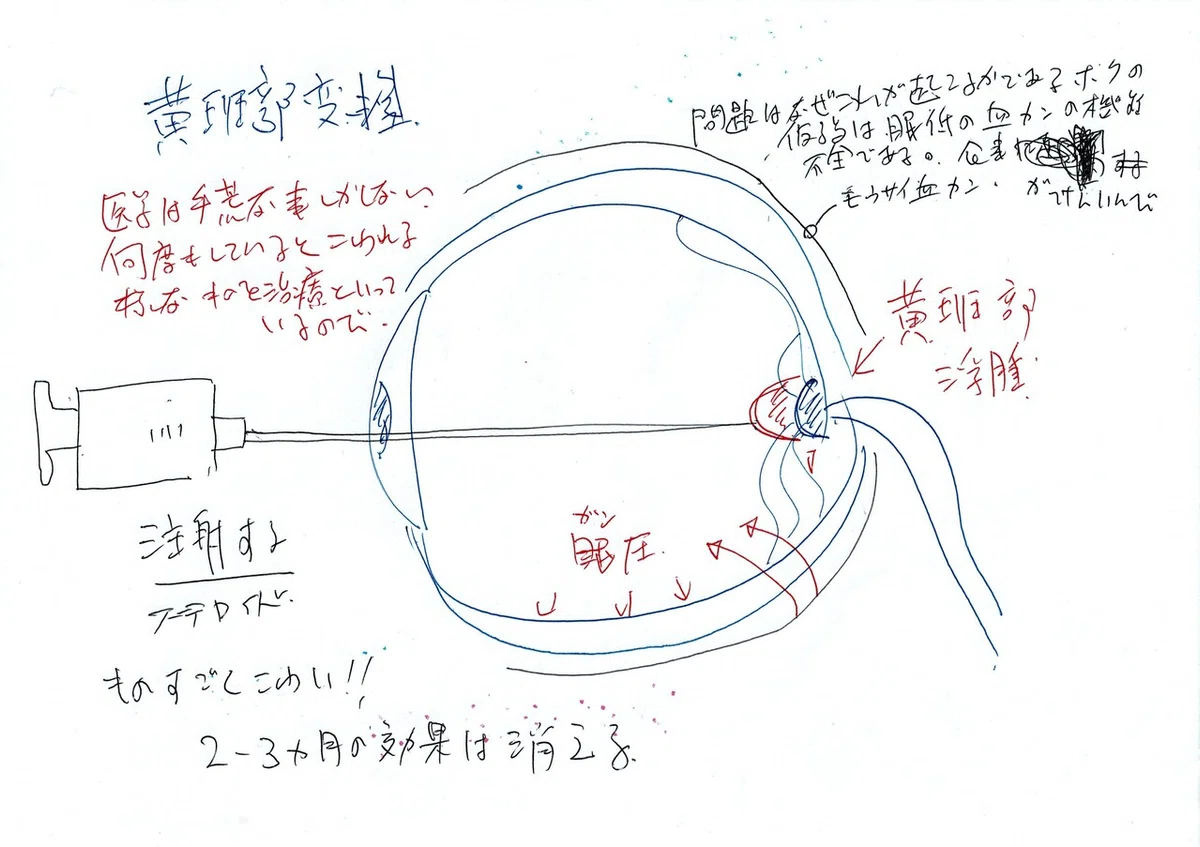 黄班部変性
問題はなぜこれが起こるかである ボクの
仮説は眼低の血カンの機能
不全である。
毛ウサイ血カン. がげんいんで
医学は手荒な事しかしない
何度もしていると こわれる
いるので.
治療といって
黄班部
浮腫
ガン
眼圧.
注射する
ステロイド.
ものすごくこわい!!
2-3カ月の効果は消える.